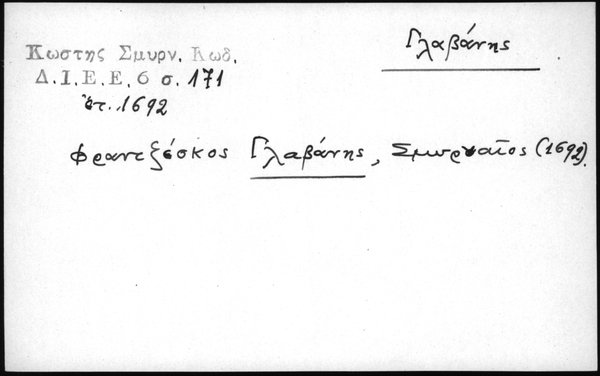 Γλαβάνης
Κωστης Σμυρν. Κωδ.
Δ.Ι.Ε.Ε, 6 σ. 171
ἔτ. 1692
Φραντζέσκος Γλαβάνης, Σμυρναῖος (1692).